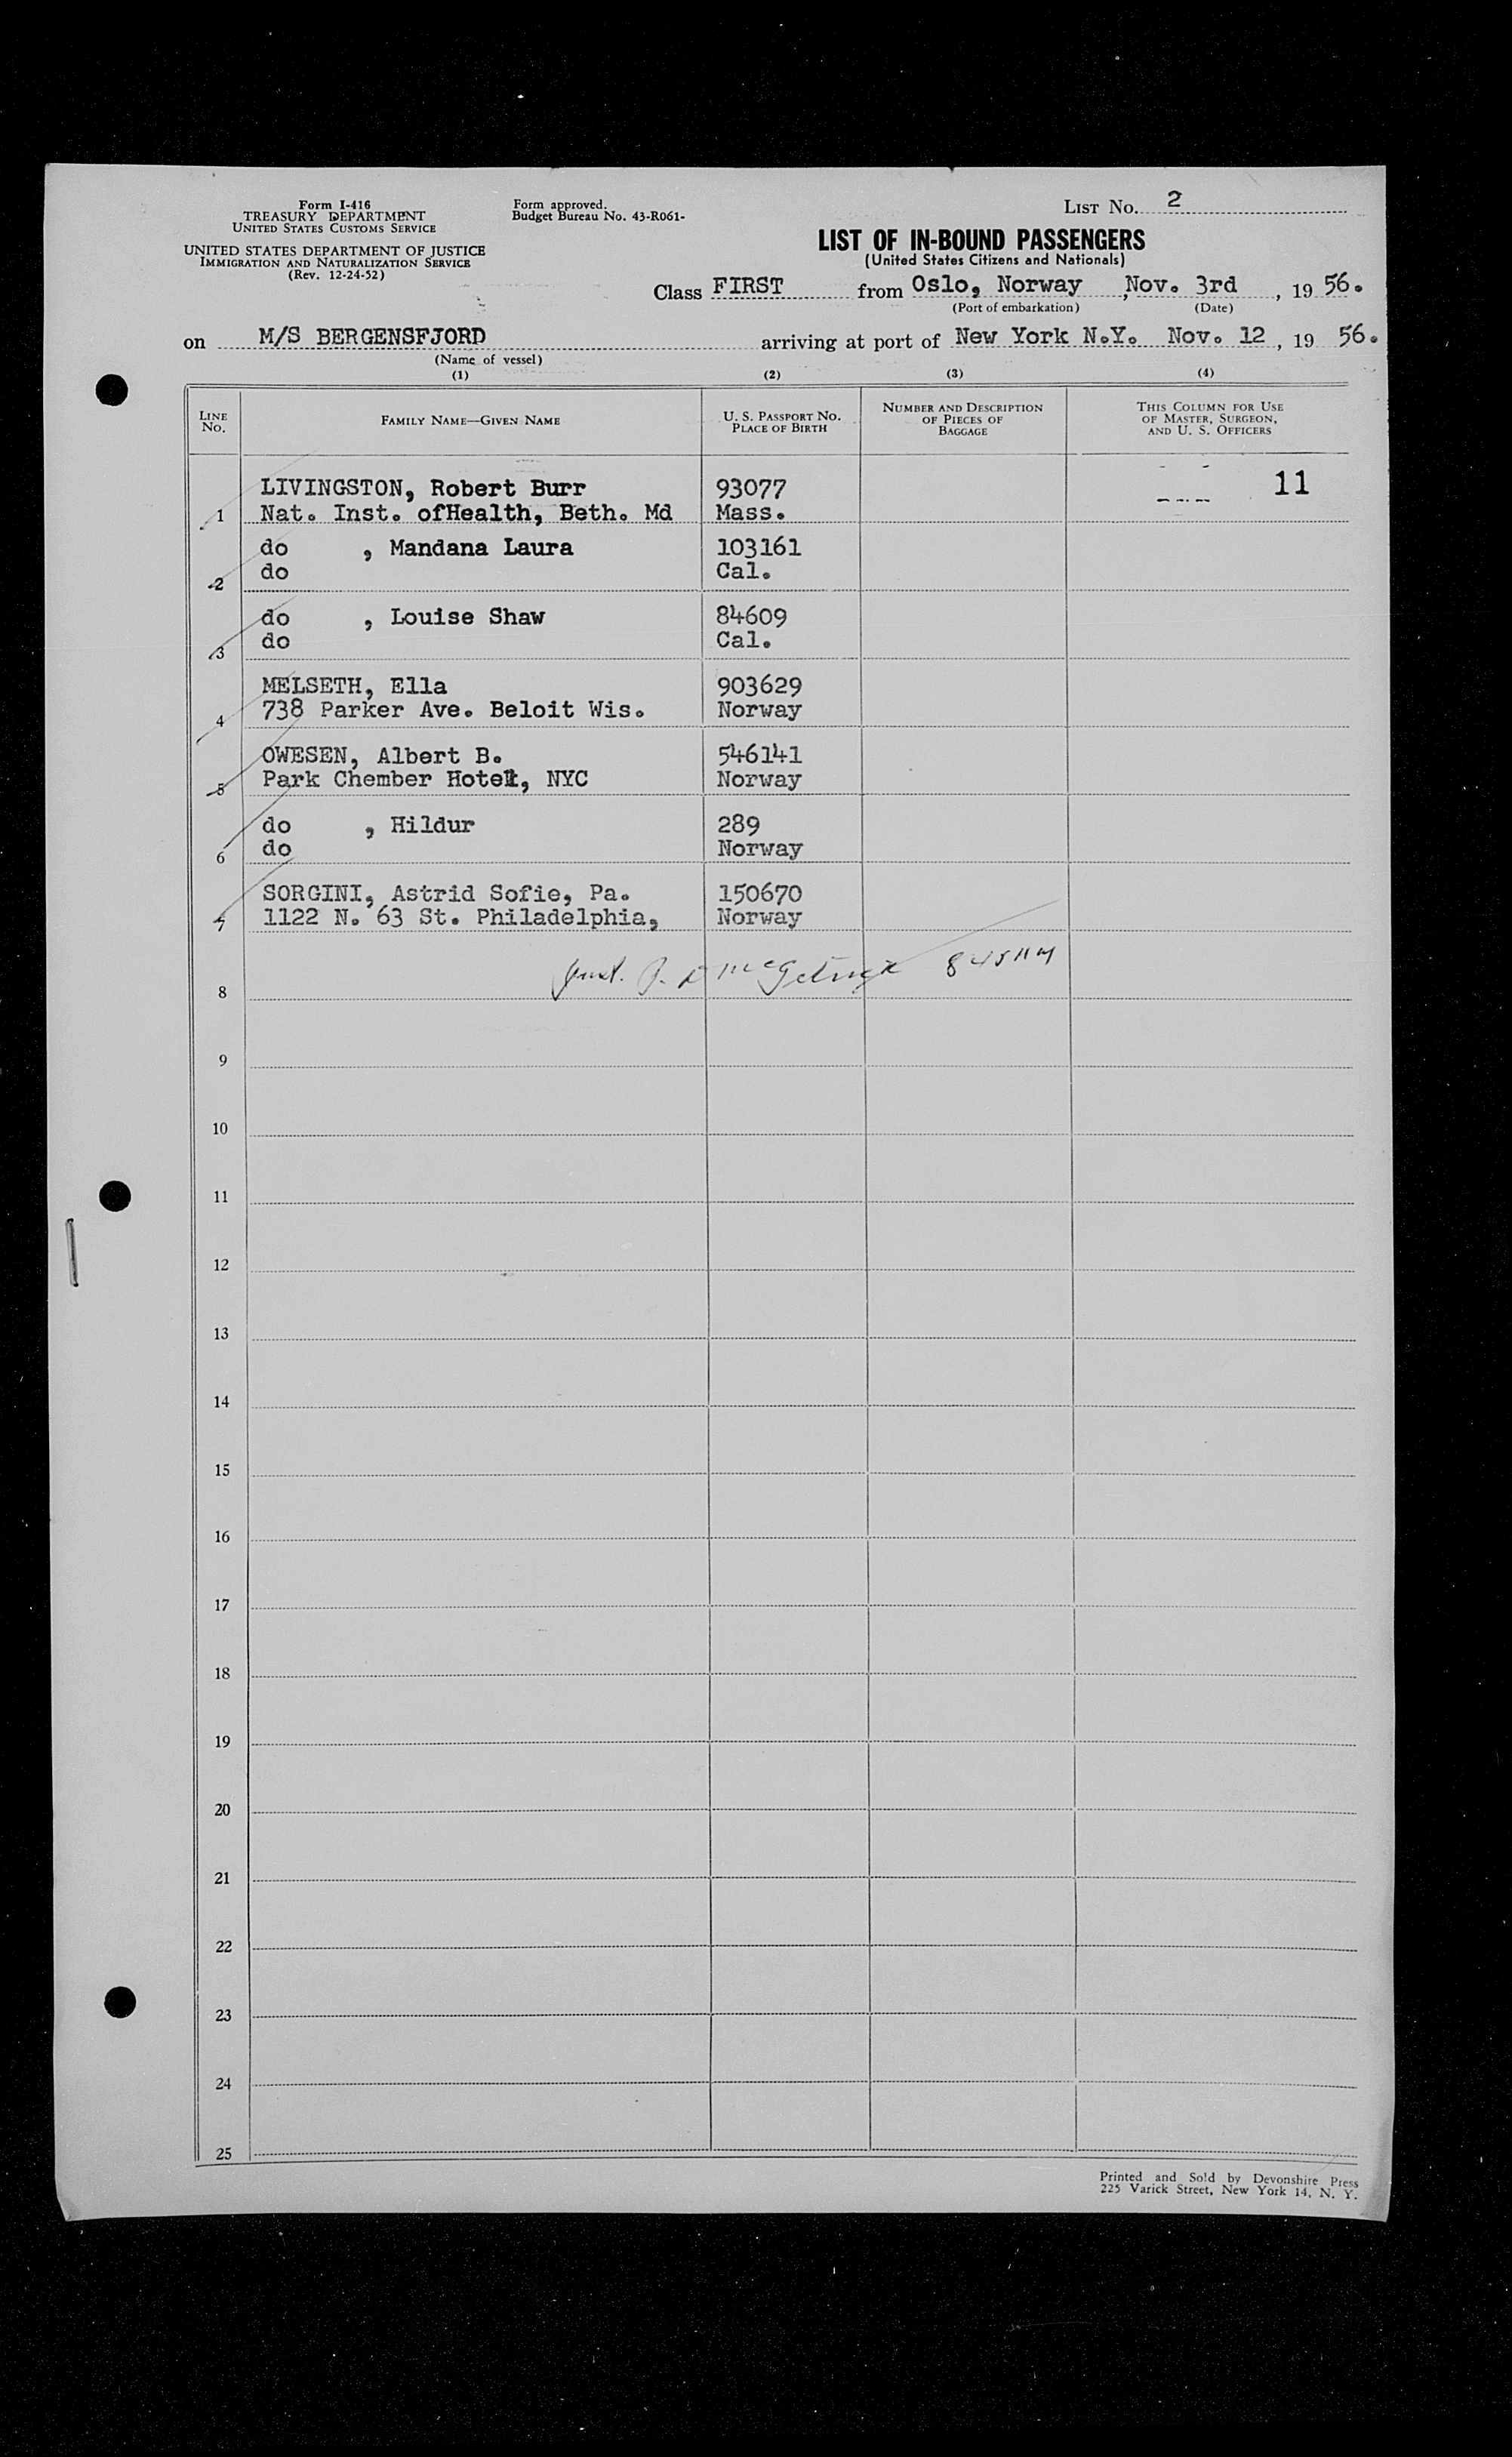 Form I-416
TREASURY DEPARTMENT
UNITED STATES CUSTOMS SERVICE
UNITED STATES DEPARTMENT OF JUSTICE
IMMIGRATION AND NATURALIZATION SERVICE
(Rev. 12-24-52)
Form approved.
Budget Bureau No. 43-R061-
LIST NO. 2
LIST OF IN-BOUND PASSENGERS
(United States Citizens and Nationals)
Class FIRST from Oslo, Norway , Nov. 3rd , 19 56.
(Port of embarkation) (Date)
on M/S BERGENSFJORD arriving at port of New York N.Y. Nov. 12 , 19 56.
(Name of vessel)
(1) (2) (3) (4)
LINE NO. FAMILY NAME—GIVEN NAME U. S. PASSPORT NO. PLACE OF BIRTH NUMBER AND DESCRIPTION OF PIECES OF BAGGAGE THIS COLUMN FOR USE OF MASTER, SURGEON, AND U. S. OFFICERS
LIVINGSTON, Robert Burr 93077 11
1 Nat. Inst. ofHealth, Beth. Md Mass.
do , Mandana Laura 103161
2 do Cal.
do , Louise Shaw 84609
3 do Cal.
MELSETH, Ella 903629
4 738 Parker Ave. Beloit Wis. Norway
OWESEN, Albert B. 546141
5 Park Chember Hotel, NYC Norway
do , Hildur 289
6 do Norway
SORGINI, Astrid Sofie, Pa. 150670
7 1122 N. 63 St. Philadelphia, Norway
8
9
10
11
12
13
14
15
16
17
18
19
20
21
22
23
24
25
Printed and Sold by Devonshire Press
225 Varick Street, New York 14, N. Y.